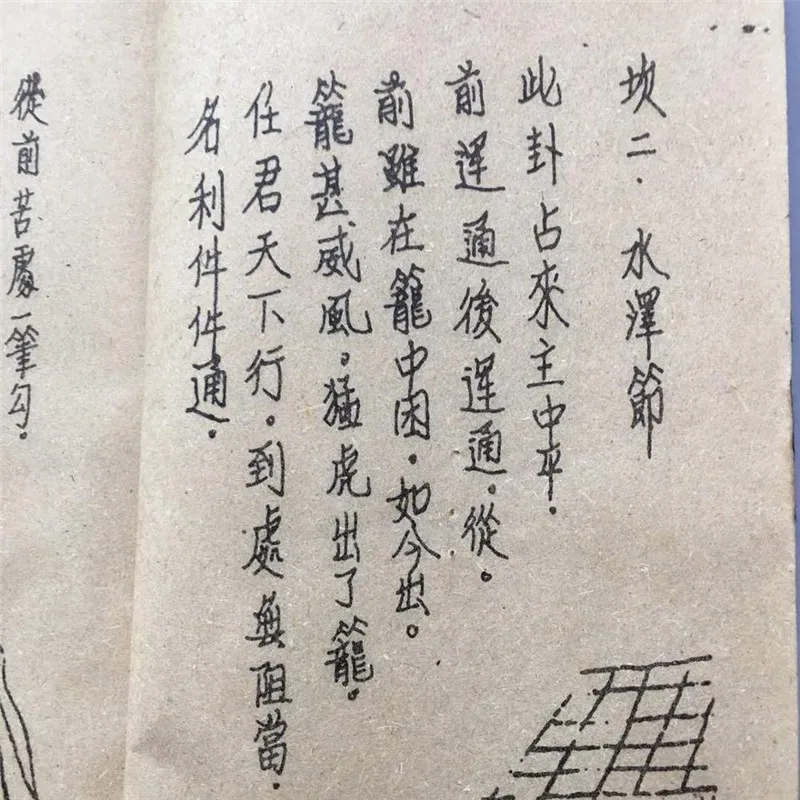 坎二．水澤節
此卦占來主中平．
前運通後運通．從。
前雖在籠中困．如今出。
籠甚威風。猛虎出了籠。
任君天下行．到處無阻當．
名利件件通．
從前苦處一筆勾．